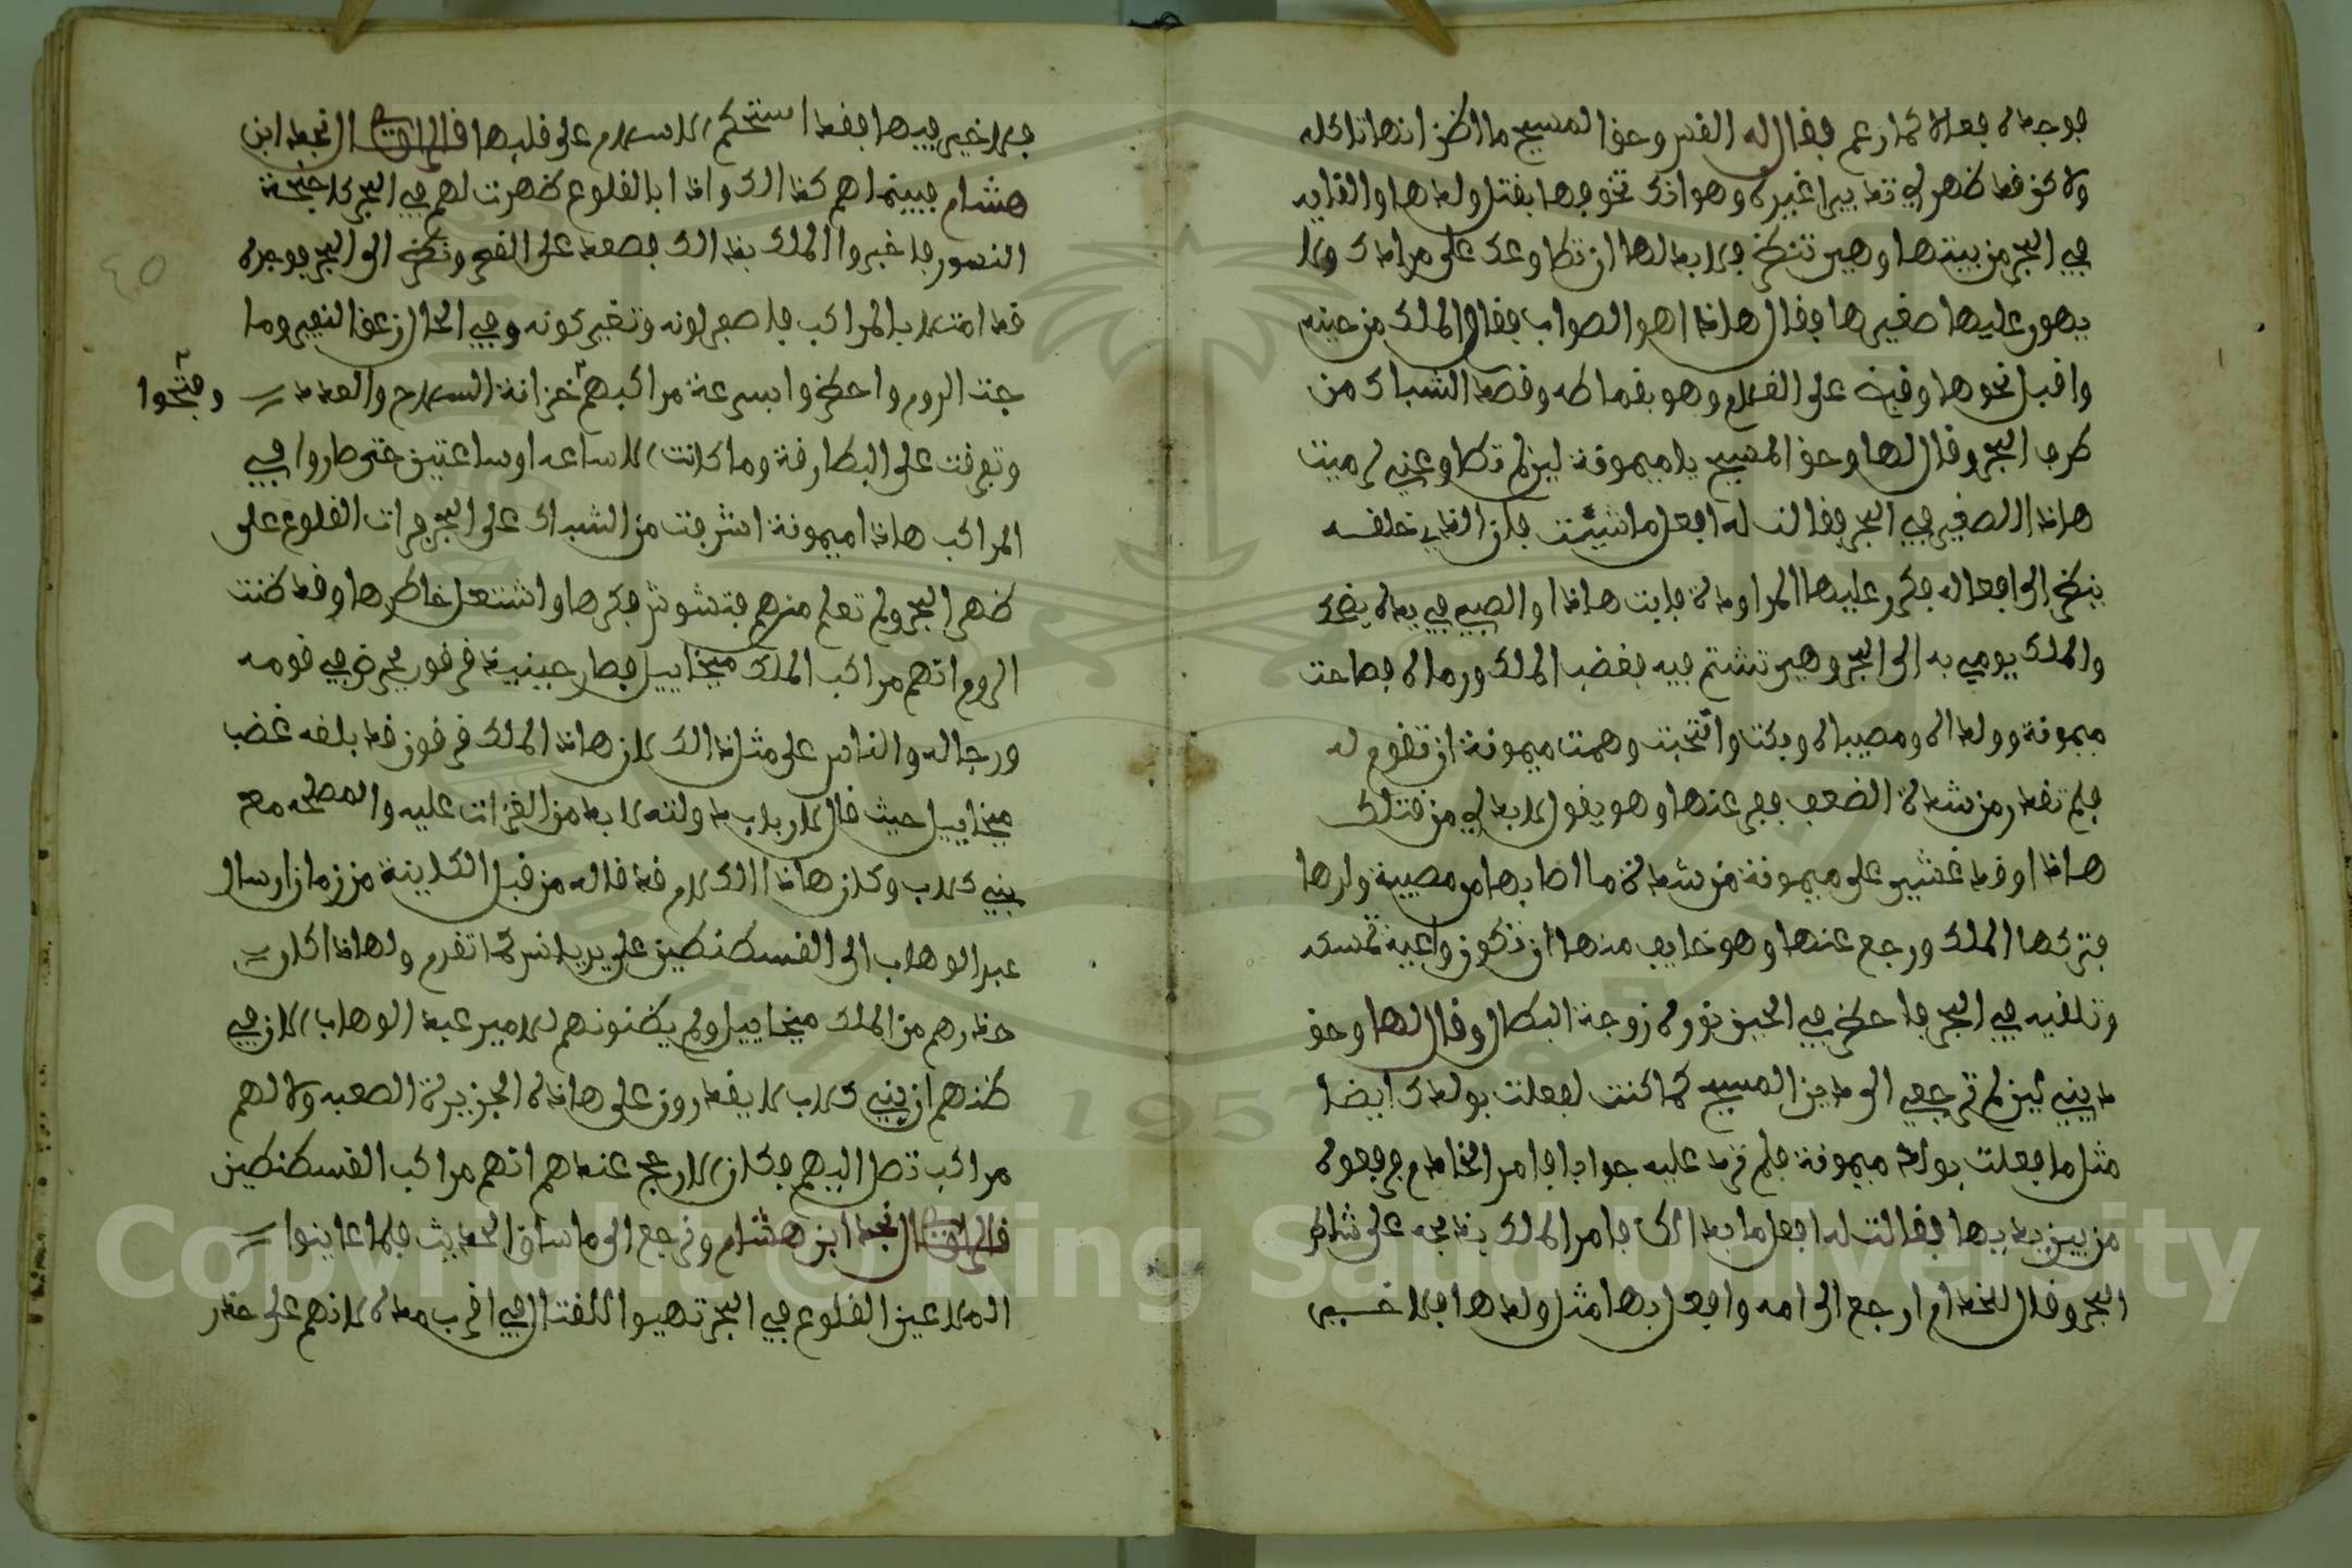 فوجداه فعلا كما زعم فقال له القس وحق المسيح ما اظن انها تاكله
ولاكن قد ظهر لي تدبيرا غيره وهو انك تخوفها بقتل ولدها او القايه
في البحر من بيتها وهي تنظر فلا بد لها ان تطاوعك على مرادك ولا
يهون عليها صغيرها فقال هاذا هو الصواب فقام الملك من حينه
واقبل نحوها وقبض على الغلام وهو بقماطه وقصد الشباك من
طرف البحر وقال لها وحق المسيح يا ميمونة لين لم تطاوعني لرميت
هاذا الصغير في البحر فقالت له افعل ما شيئت فان الذي خلقه
ينظر الى افعاله فكرر عليها المراودة فابت هاذا والصبي في يده يضحك
والملك يومي به الى البحر وهي تشتم فيه فغضب الملك ورماه فصاحت
ميمونة وولداه ومصيباه وبكت وانتحبت وهمت ميمونة ان تقوم له
فلم تقدر من شدة الضعف ففر عنها وهو يقول لا بد لي من قتلك
هاذا وقد غشي على ميمونة من شدة ما اصابها من مصيبة ولدها
فتركها الملك ورجع عنها وهو خايف منها ان تكون واعية تمسكه
وتلقيه في البحر فاحضر في الحين نورة زوجة البطال وقال لها وحق
ديني لين لم ترجعي الى دين المسيح كما كنت لفعلت بولدك ايضا
مثل ما فعلت بولد ميمونة فلم ترد عليه جوابا فامر الخادم فرفعوه
من بين يديها فقالت له افعل ما بدالك فامر الملك بذبحه على شاطي
البحر وقال للخدام ارجع الى امه وافعل بها مثل ولدها فلا خير
فلا خير فيها فقد استحكم الاسلام على قلبها قال الراوي نجد ابن
هشام فبينما هم كذالك واذا بالقلوع ظهرت لهم في البحر كاجنحة
النسور فاخبروا الملك بذالك فصعد على القصر ونظر الى البحر فوجده
قد امتلا بالمراكب فاصفر لونه وتغير كونه وفي الحال زعق النفير وما
جت الروم واحضروا بسرعة مراكبهم خزانة السلاح والعدد وفتحوا
وتفرقت على البطارقة وما كانت الا ساعه او ساعتين حتى صاروا في
المراكب هاذا وميمونة اشرفت من الشباك على البحر فرات القلوع على
ظهر البحر ولم تعلم منهم فتشوش فكرها واشتعل خاطرها وقد ظنت
الروم انهم مراكب الملك ميخاييل فصار حينيذ قرقور يحرض في قومه
ورجاله والناس على مثل ذالك لان هاذا الملك قرقور قد بلغه غضب
ميخاييل حيث قال لارباب دولته لا بد من الغزات عليه والمصلحه مع
بني كلاب وكان هاذا الكلام قد قاله من قبل الكاينة من زمان ارسال
عبد الوهاب الى القسطنطين على يد يانس كما تقدم ولهاذا كان
حذرهم من الملك ميخاييل ولم يظنونهم للامير عبد الوهاب لان في
ظنهم ان بني كلاب لا يقدرون على هاذه الجزيرة الصعبه ولا لهم
مراكب تصل اليهم فكان الارجح عندهم انهم مراكب القسطنطين
قال الراوي نجد ابن هشام ونرجع الى ما ساق الحديث فلما عاينوا
الملاعين القلوع في البحر تهيوا للقتال في اقرب مدة لانهم على حذر